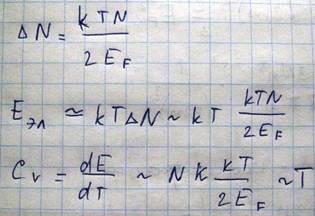 ΔN = kTN / 2E_F
E_эл ≃ kTΔN ~ kT kTN / 2E_F
C_v = dE / dT ~ NK kT / 2E_F ~ T